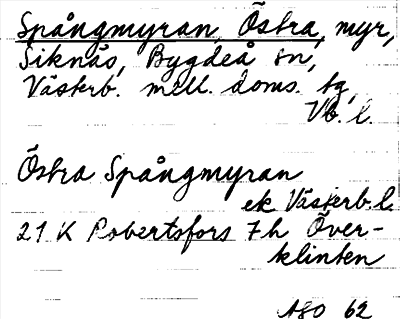 Spångmyran, Östra, myr,
Siknäs, Bygdeå sn,
Västerb. mell. doms. tg,
Vb. l.
Östra Spångmyran
ek Västerb. l.
21 K Robertsfors 7h Över-
klinten
ÄGO 62